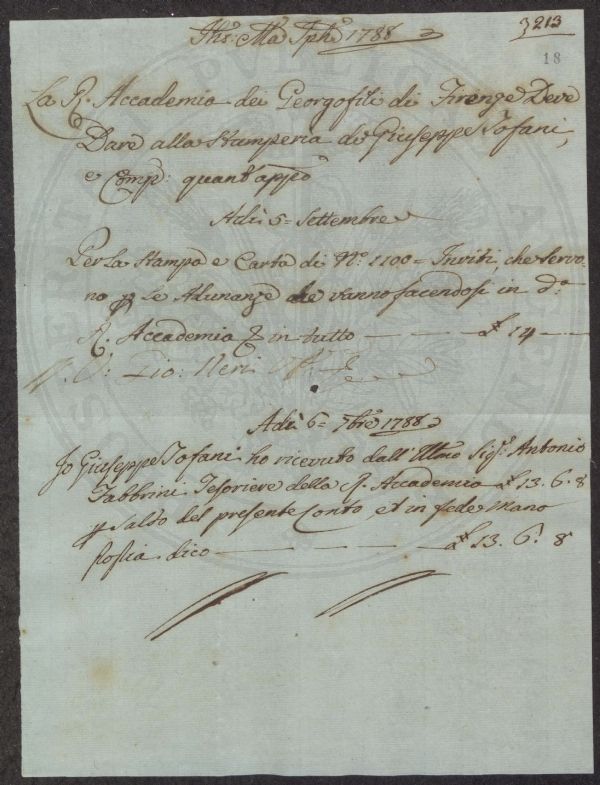 3213
18
Jhs: Ma: Jph: 1788
La R. Accademia dei Georgofili di Firenze Deve
Dare alla Stamperia di Giuseppe Tofani,
e Comp: quant'app:o
Adì 5= Settembre
Per la Stampa e Carta di N:o 1100= Inviti, che servo=
no p le Adunanze che vanno facendosi in d:a
R. Accademia in tutto £ 14
Gio: Neri
Adì 6= 7bre 1788
Io Giuseppe Tofani ho ricevuto dall'Illmo Sig:r Antonio
Fabbrini Tesoriere della R. Accademia £ 13. 6. 8
p saldo del presente Conto et in fede mano
propia dico £ 13. 6. 8